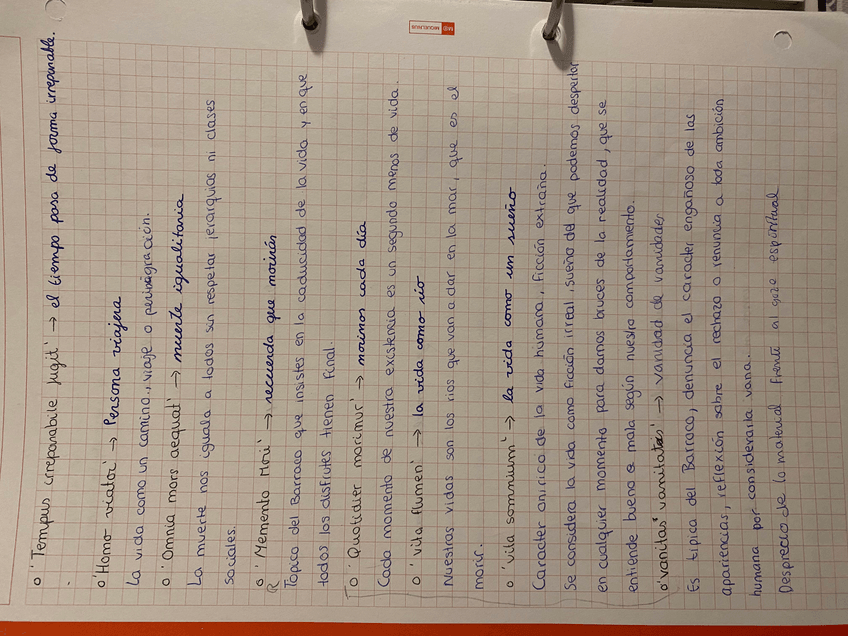 o 'Tempus irreparabile fugit' → el tiempo pasa de forma irreparable.
o 'Homo viator' → Persona viajera
La vida como un camino, viaje o perinigración.
o 'Omnia mors aequat' → muerte igualitaria
La muerte nos iguala a todos sin respetar jerarquias ni clases
sociales.
o 'Memento Mori' → recuerda que morirás
Tópico del Barroco que insistes en la caducidad de la vida y en que
todos los disfrutes tienen final.
o 'Quotidier morimur' → morimos cada día
Cada momento de nuestra existencia es un segundo menos de vida.
o 'vita flumen' → la vida como río
Nuestras vidas son los rios que van a dar en la mar, que es el
morir.
o 'vita somnium' → la vida como un sueño
Caracter onirico de la vida humana, ficción extraña.
Se considera la vida como ficción irreal, sueño del que podemos despertar
en cualquier momento para darnos bruces de la realidad, que se
entiende buena o mala según nuestro comportamiento.
o 'vanitas vanitatis' → vanidad de vanidades
Es típica del Barroco, denuncia el caracter engañoso de las
apariencias, reflexión sobre el rechazo o renuncia a toda ambición
humana por considerarla vana.
Desprecio de lo material frente al goze espiritual
MIQUELRIUS